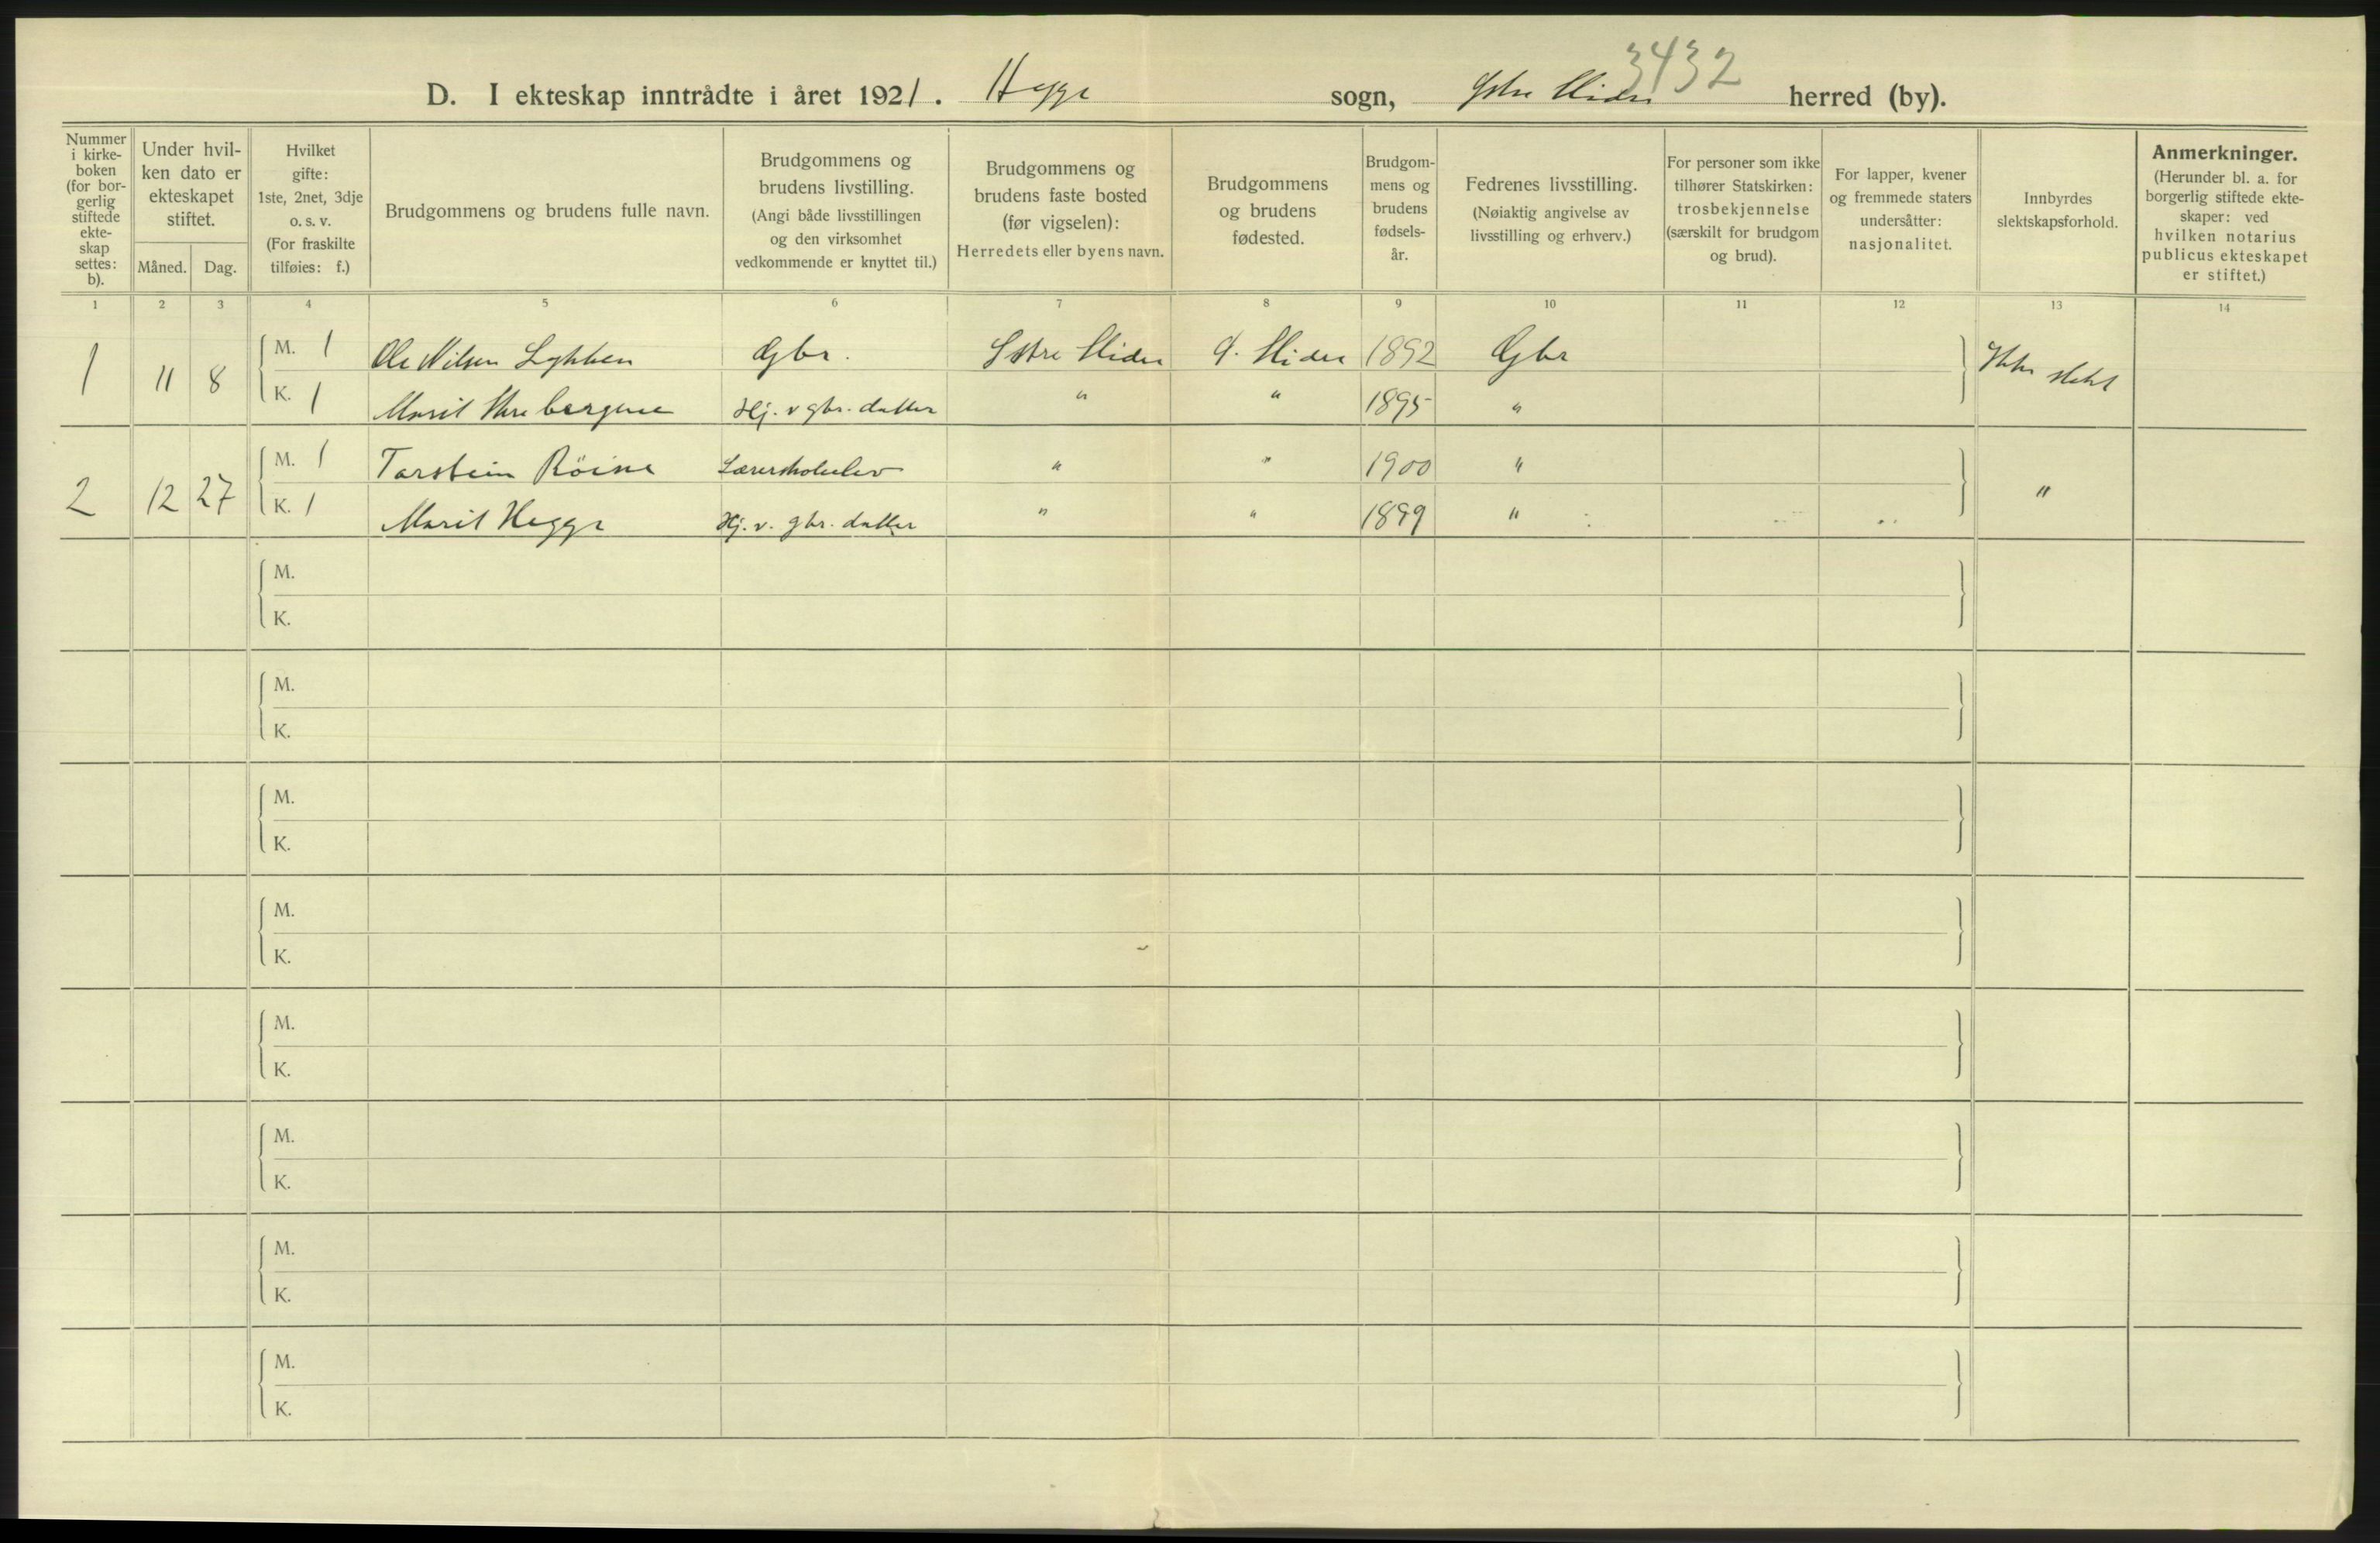 3432
D. I ekteskap inntrådte i året 1921. Hegge sogn, Østre Slidre herred (by).
Nummer i kirke- boken (for bor- gerlig stiftede ekte- skap settes: b).
Under hvil- ken dato er ekteskapet stiftet.
Måned. Dag.
Hvilket gifte: 1ste, 2net, 3dje o. s. v. (For fraskilte tilføies: f.)
Brudgommens og brudens fulle navn.
Brudgommens og brudens livstilling. (Angi både livsstillingen og den virksomhet vedkommende er knyttet til.)
Brudgommens og brudens faste bosted (før vigselen): Herredets eller byens navn.
Brudgommens og brudens fødested.
Brudgom- mens og brudens fødsels- år.
Fedrenes livsstilling. (Nøiaktig angivelse av livsstilling og erhverv.)
For personer som ikke tilhører Statskirken: trosbekjennelse (særskilt for brudgom og brud).
For lapper, kvener og fremmede staters undersåtter: nasjonalitet.
Innbyrdes slektskapsforhold.
Anmerkninger. (Herunder bl. a. for borgerlig stiftede ekte- skaper: ved hvilken notarius publicus ekteskapet er stiftet.)
1 2 3 4 5 6 7 8 9 10 11 12 13 14
1 11 8 M. 1 Ole Nilsen Lykken Gbr. Østre Slidre Ø. Slidre 1892 Gbr Ikke slekt
K. 1 Marit Hj. v gbr. datter " " 1895 "
2 12 27 M. 1 Torstein Röine Lærerskoleelev " " 1900 " "
K. 1 Marit Hegge Hj. v. gbr. datter " " 1899 "
M.
K.
M.
K.
M.
K.
M.
K.
M.
K.
M.
K.
M.
K.
M.
K.